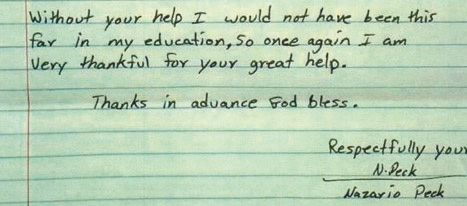 Without your help I would not have been this
far in my education, So once again I am
Very thankful for your great help.
Thanks in advance God bless.
Respectfully your
N. Peck
Nazario Peck